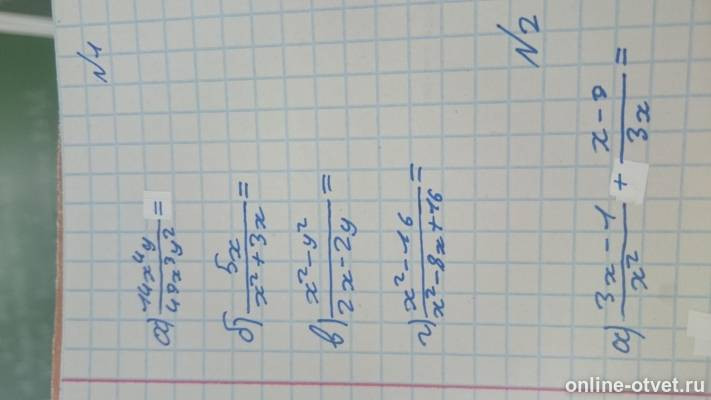 N1
а) 14x⁴y / 49x³y² =
б) 5x / x²+3x =
в) x²-y² / 2x-2y =
г) x²-16 / x²-8x+16 =
N2
а) 3x-1 / x² + x-9 / 3x =
online-otvet.ru